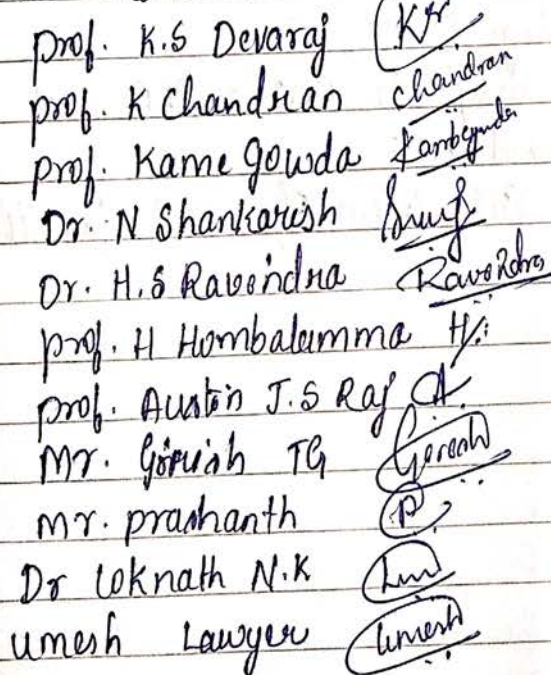 prof. K.S Devaraj Kr
prof. K Chandran chandran
prof. Kame Gowda
Dr. N Shankaresh
Dr. H.S Raveendra Raveendra
prof. H Hombalamma H
prof. Austin J.S Raj A
Mr. Girish TG Girish
mr. prashanth P
Dr loknath N.K
umesh Lawyer umesh